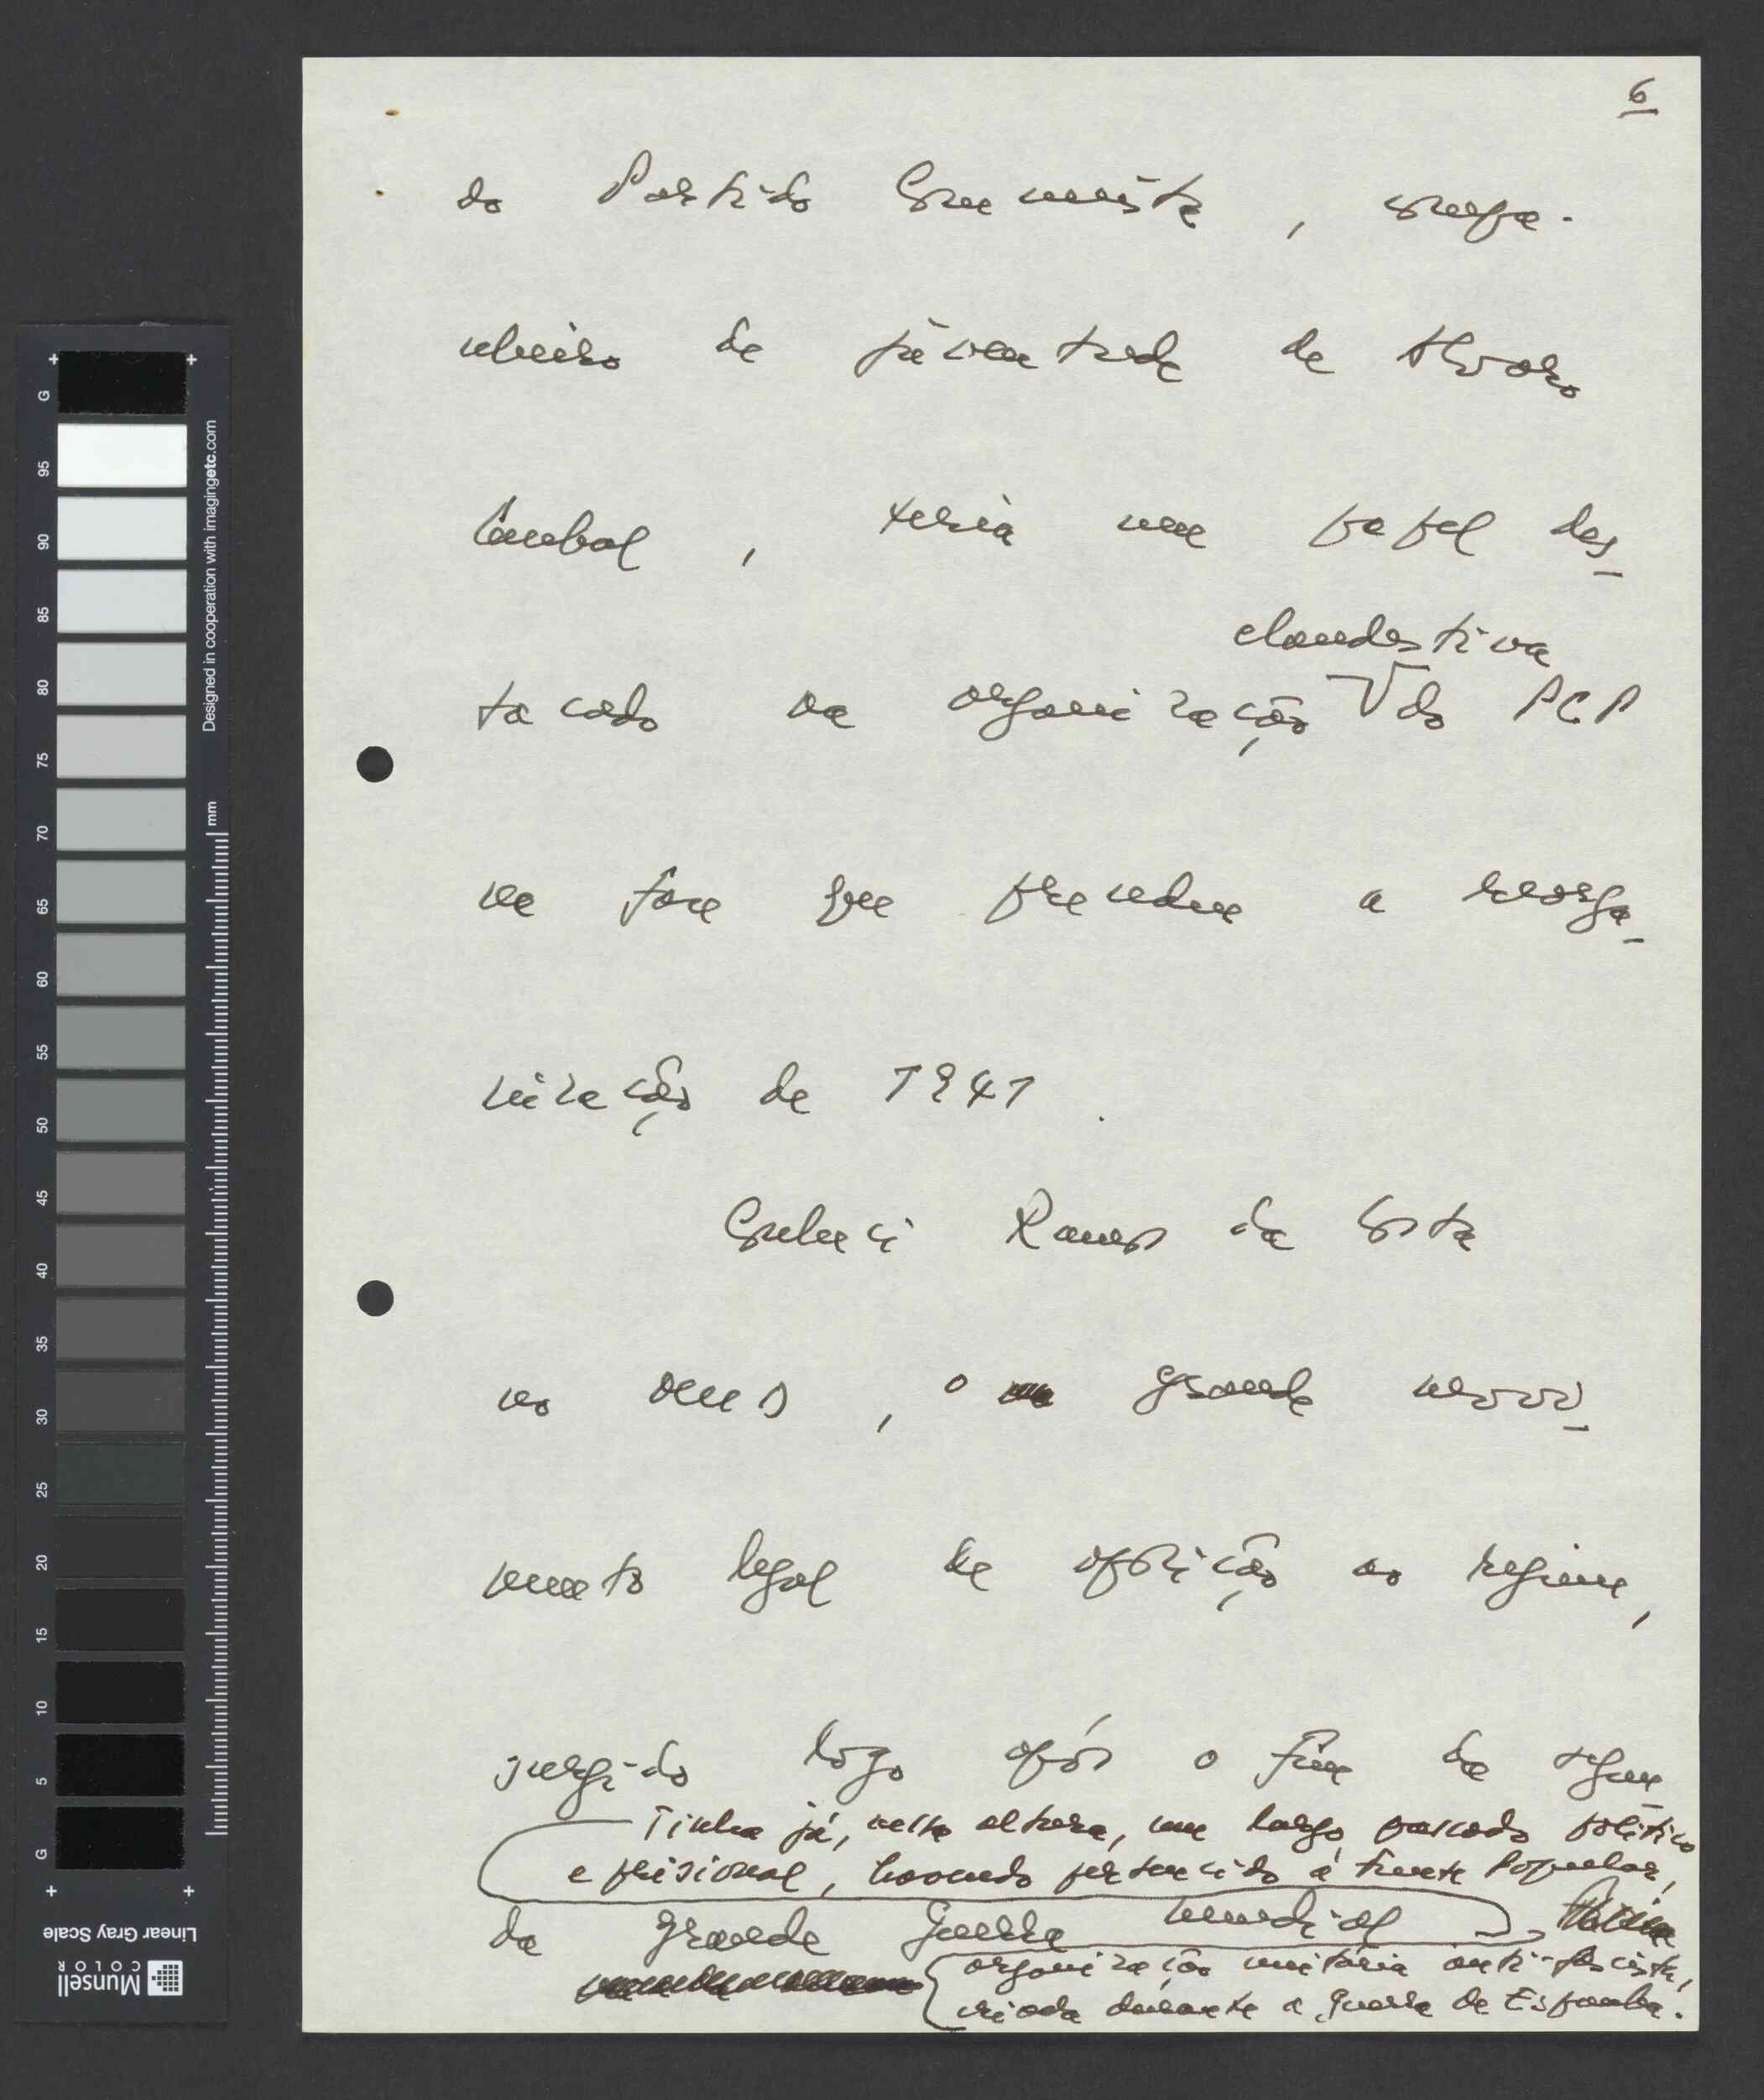 6
do Partido Comunista, compa-
nheiro de juventude de Alvaro
Cunhal, teria um papel des-
clandestina
tacado na organização do PCP
na fase que precedeu a reorga-
nização de 1941.
Conheci Ramos da Costa
no MUD, o grande movi-
mento legal de oposição ao regime,
surgido logo após o fim da segun-
Tinha já, nessa altura, um largo passado político
e prisional, havendo pertencido à Frente Popular,
da grande Guerra mundial
organização unitária anti-fascista,
criada durante a guerra de Espanha.
G
95
90
85
80
75
70
65
60
55
50
45
40
35
30
25
20
15
10
5
G
Designed in cooperation with imagingetc.com
mm
Linear Gray Scale
Munsell
COLOR